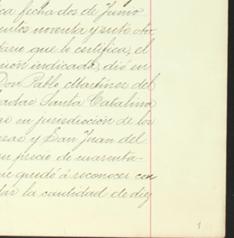 ca fecha dos de Junio
ientos noventa y siete otor
tario que le certifica, el
ión indicado, dió en
Don Pablo Martinez del
nadas Santa Catalina
as en jurisdicción de los
esas y San Juan del
en precio de cuarenta
que quedó á reconocer con
dar la cantidad de diez
1